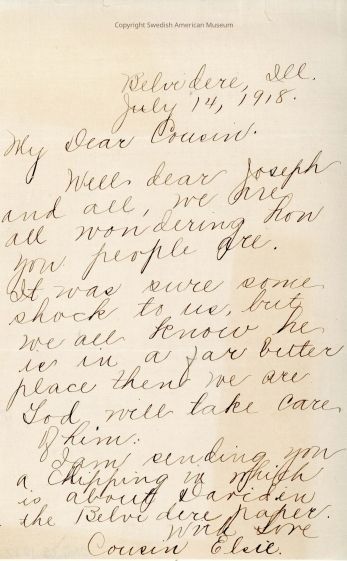 Copyright Swedish American Museum
Belvidere, Ill.
July 14, 1918.
My Dear Cousin.
Well dear Joseph
and all, we are
all wondering how
you people are.
It was sure some
shock to us, but
we all know he
is in a far better
place then we are
God will take care
of him.
I am sending you
a clipping in which
is about in
the Belvidere paper.
With Love
Cousin Elsie.